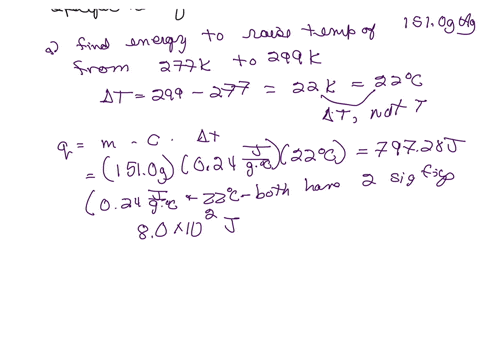 a) find energy to raise temp of 151.0g Ag
from 277K to 299K
ΔT = 299 - 277 = 22K = 22°C
ΔT, not T
q = m · C · Δt
= (151.0g)(0.24 J/g·°C)(22°C) = 797.28J
(0.24 J/g·°C + 22°C - both have 2 sig figs
8.0×10² J